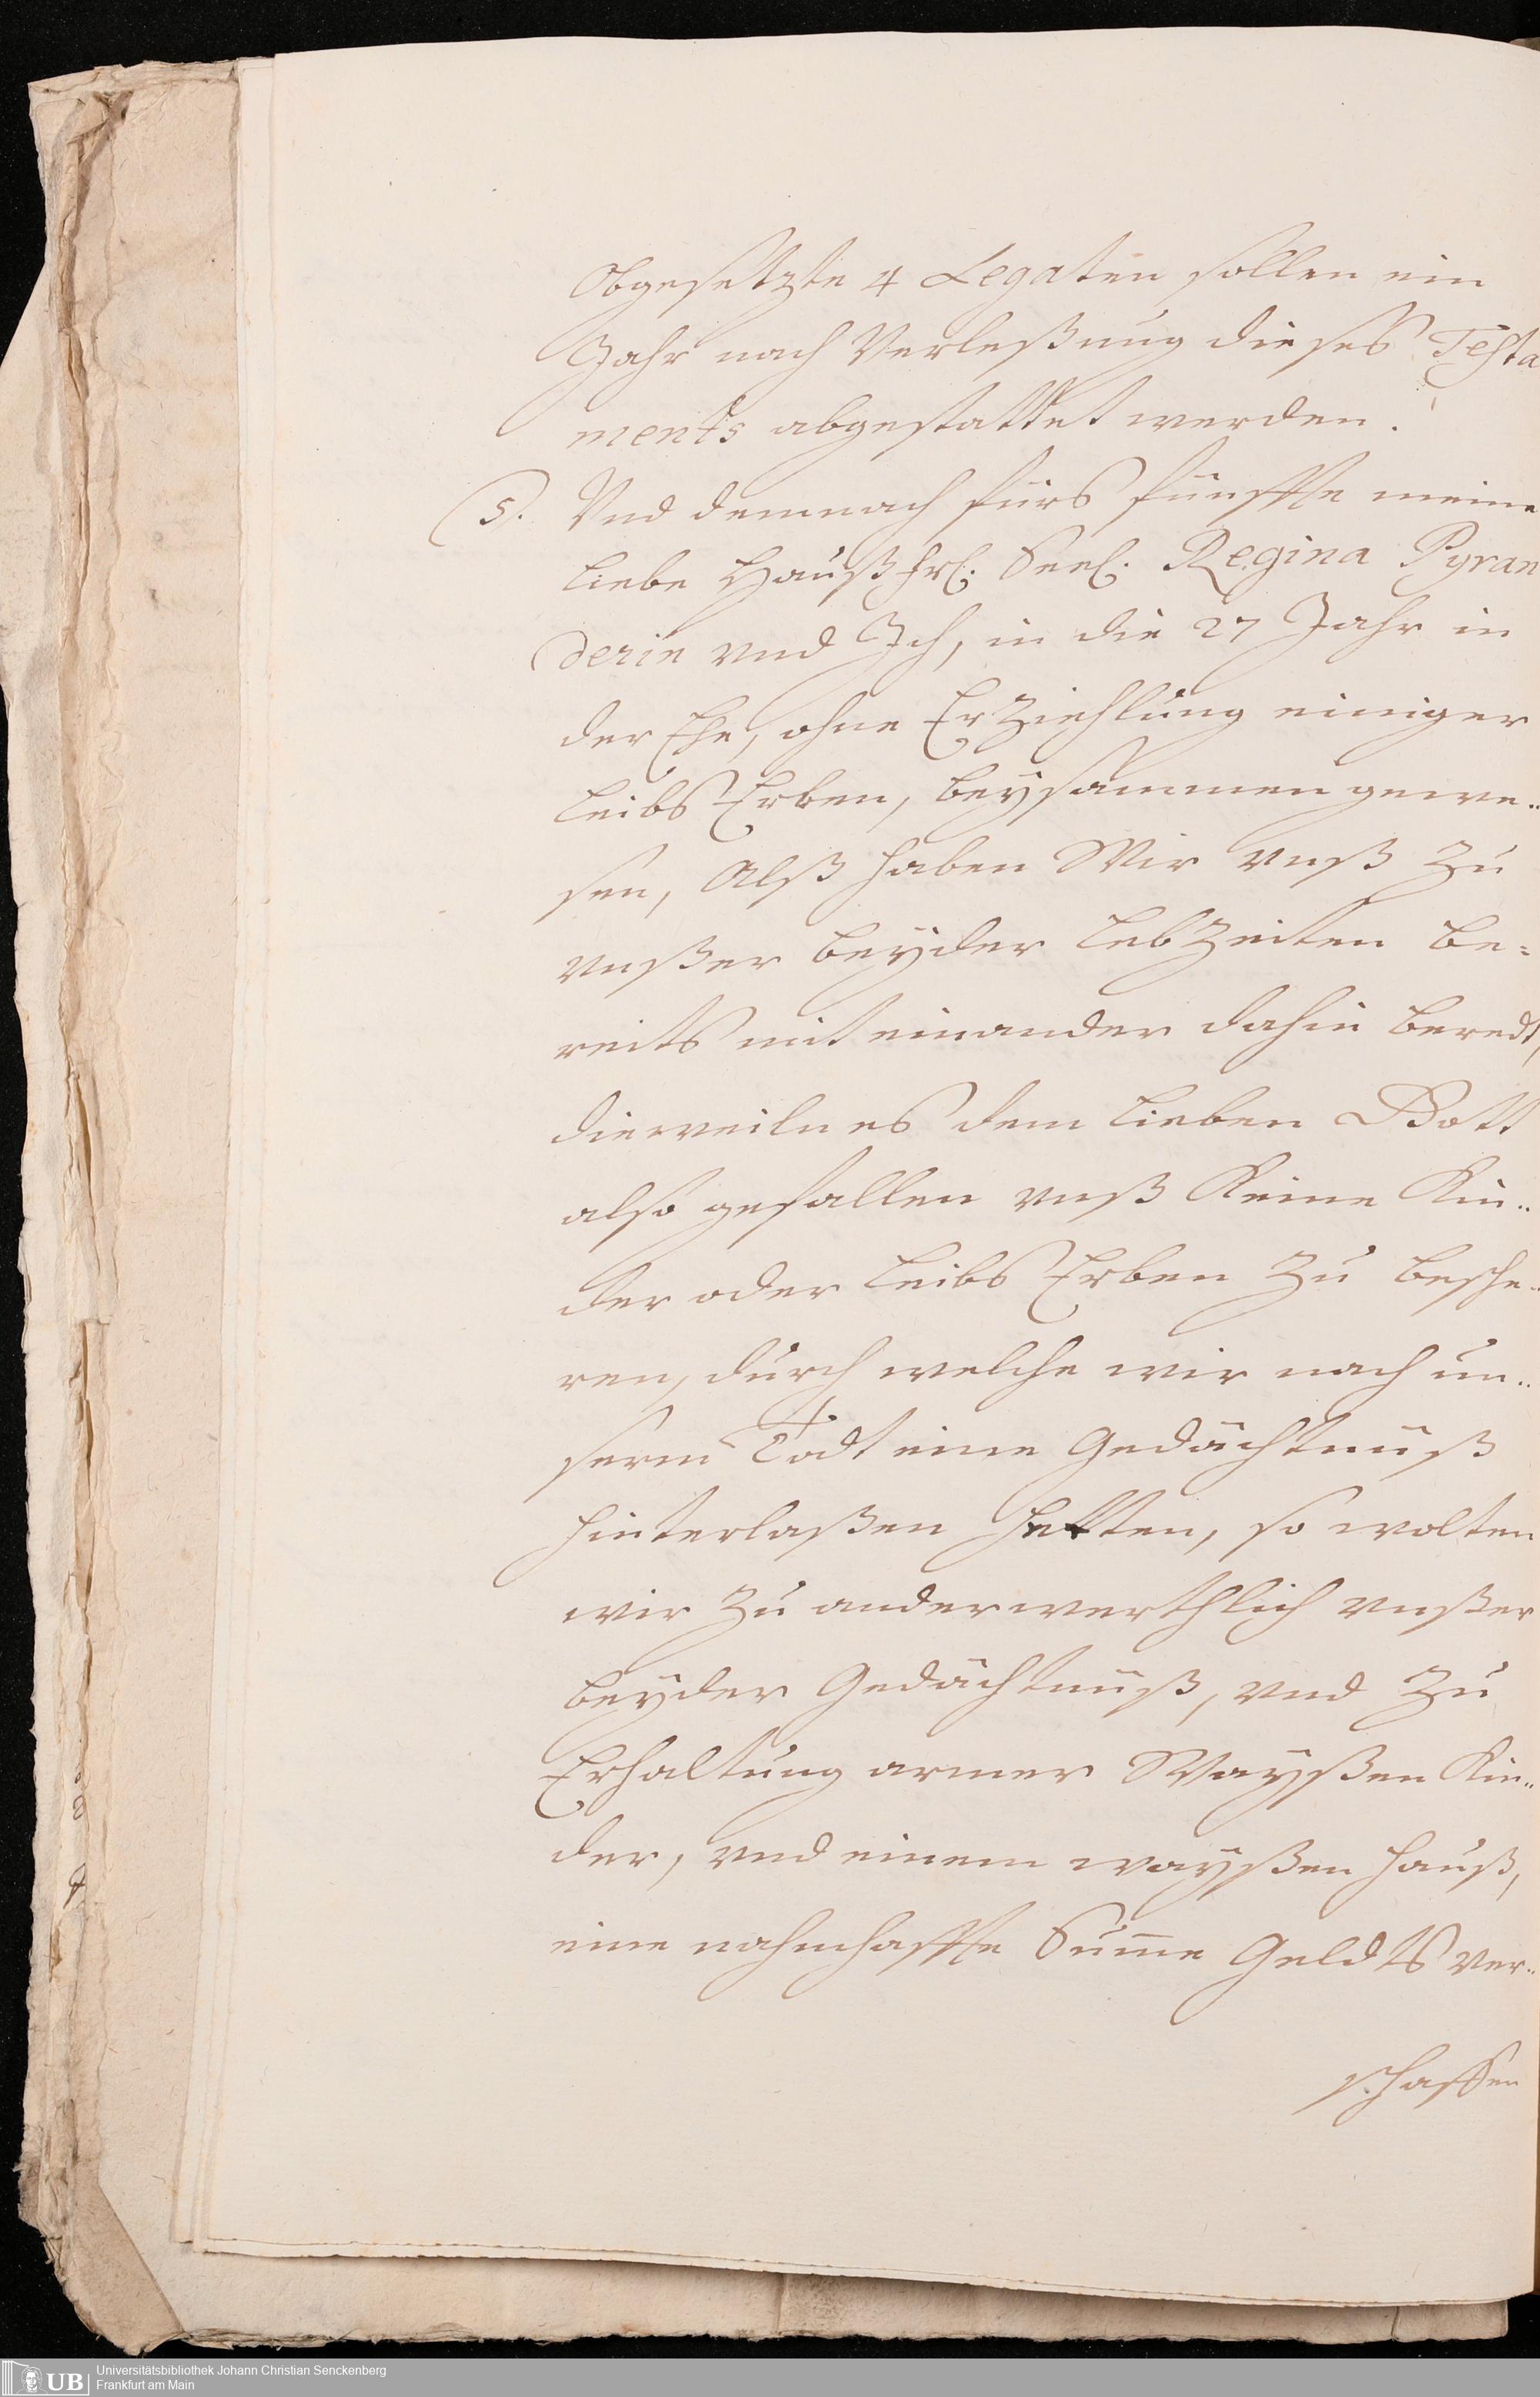 Obgesetzte 4 Legaten sollen ein
Jahr nach Verleßung dieses Testa
ments abgestattet werden.
5. Vnd demnach fürs fünffte meine
liebe Haußfr. Seel. Regina Pyran
derin vnd Jch, in die 27 Jahr in
der Ehe, ohne Erziehlung einiger
leibs Erben, beysammen gewe..
sen, Alß haben Wir vnß zu
vnßer beyder lebzeiten be=
reits mit einander dahin beredt,
dieweiln es dem lieben Gott
also gefallen vnß keine Kin..
der oder leibs Erben zu besche..
ren, durch welche wir nach un..
serm Todt eine Gedächtnuß
hinterlaßen hetten, so wolten
wir zu anderwerthlich vnßer
beyder Gedächtnuß, vnd zu
Erhaltung armer Wayßen Kin..
der, vnd einem wayßen hauß,
eine nahmhaffte Sume Geldts ver..
schaffen
UB Universitätsbibliothek Johann Christian Senckenberg
Frankfurt am Main